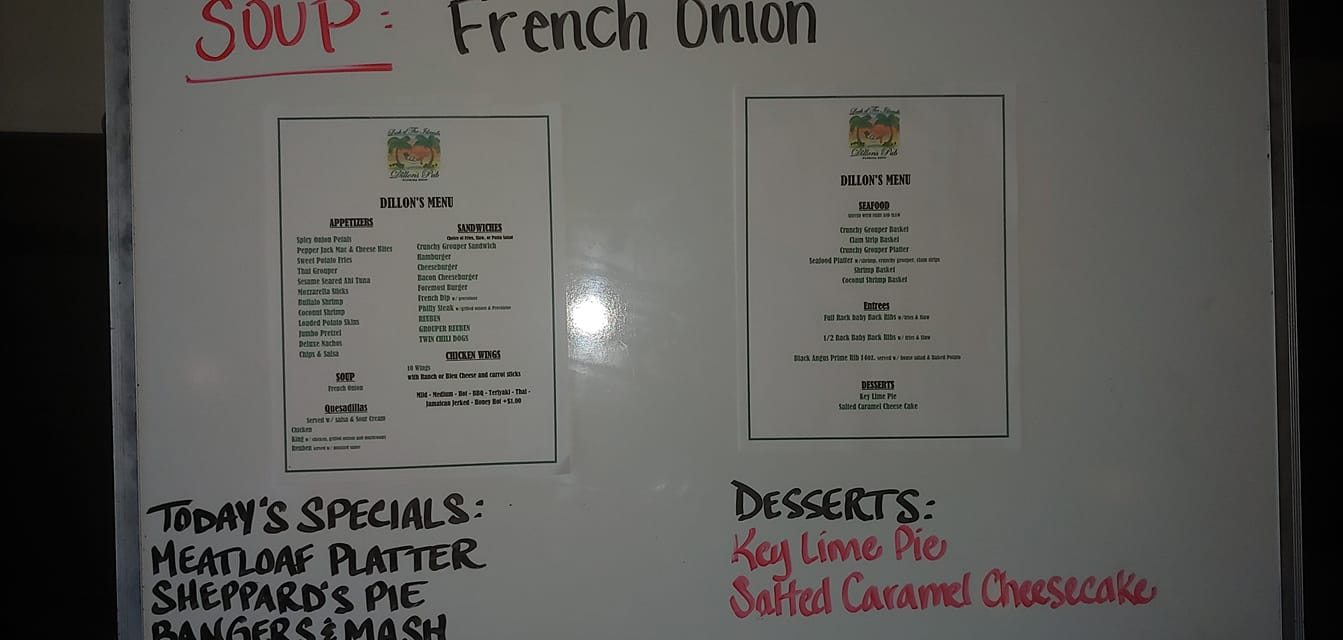 SOUP: French Onion
Luck of The Islands
Dillons Pub
DILLON'S MENU
APPETIZERS
Spicy Onion Petals
Pepper Jack Mac & Cheese Bites
Sweet Potato Fries
Thai Grouper
Sesame Seared Ahi Tuna
Mozzarella Sticks
Buffalo Shrimp
Coconut Shrimp
Loaded Potato Skins
Jumbo Pretzel
Deluxe Nachos
Chips & Salsa
SOUP
French Onion
Quesadillas
Served w/ Salsa & Sour Cream
Chicken
King w/ chicken, grilled onions and mushrooms
Reuben served w/ mustard sauce
SANDWICHES
Choice of Fries, Slaw, or Pasta Salad
Crunchy Grouper Sandwich
Hamburger
Cheeseburger
Bacon Cheeseburger
Foremost Burger
French Dip w/ provolone
Philly Steak w/grilled onions & Provolone
REUBEN
GROUPER REUBEN
TWIN CHILI DOGS
CHICKEN WINGS
10 Wings
with Ranch or Bleu Cheese and carrot sticks
Mild - Medium - Hot - BBQ - Teriyaki - Thai -
Jamaican Jerked - Honey Hot +$1.00
Dillons Pub
DILLON'S MENU
SEAFOOD
SERVED WITH FRIES AND SLAW
Crunchy Grouper Basket
Clam Strip Basket
Crunchy Grouper Platter
Seafood Platter w/shrimp, crunchy grouper, clam strips
Shrimp Basket
Coconut Shrimp Basket
Entrees
Full Rack Baby Back Ribs w/fries & Slaw
1/2 Rack Baby Back Ribs w/ fries & Slaw
Black Angus Prime Rib 14oz. served w/ house salad & Baked Potato
DESSERTS
Key Lime Pie
Salted Caramel Cheese Cake
TODAY'S SPECIALS:
MEATLOAF PLATTER
SHEPPARD'S PIE
BANGERS & MASH
DESSERTS:
Key Lime Pie
Salted Caramel Cheesecake